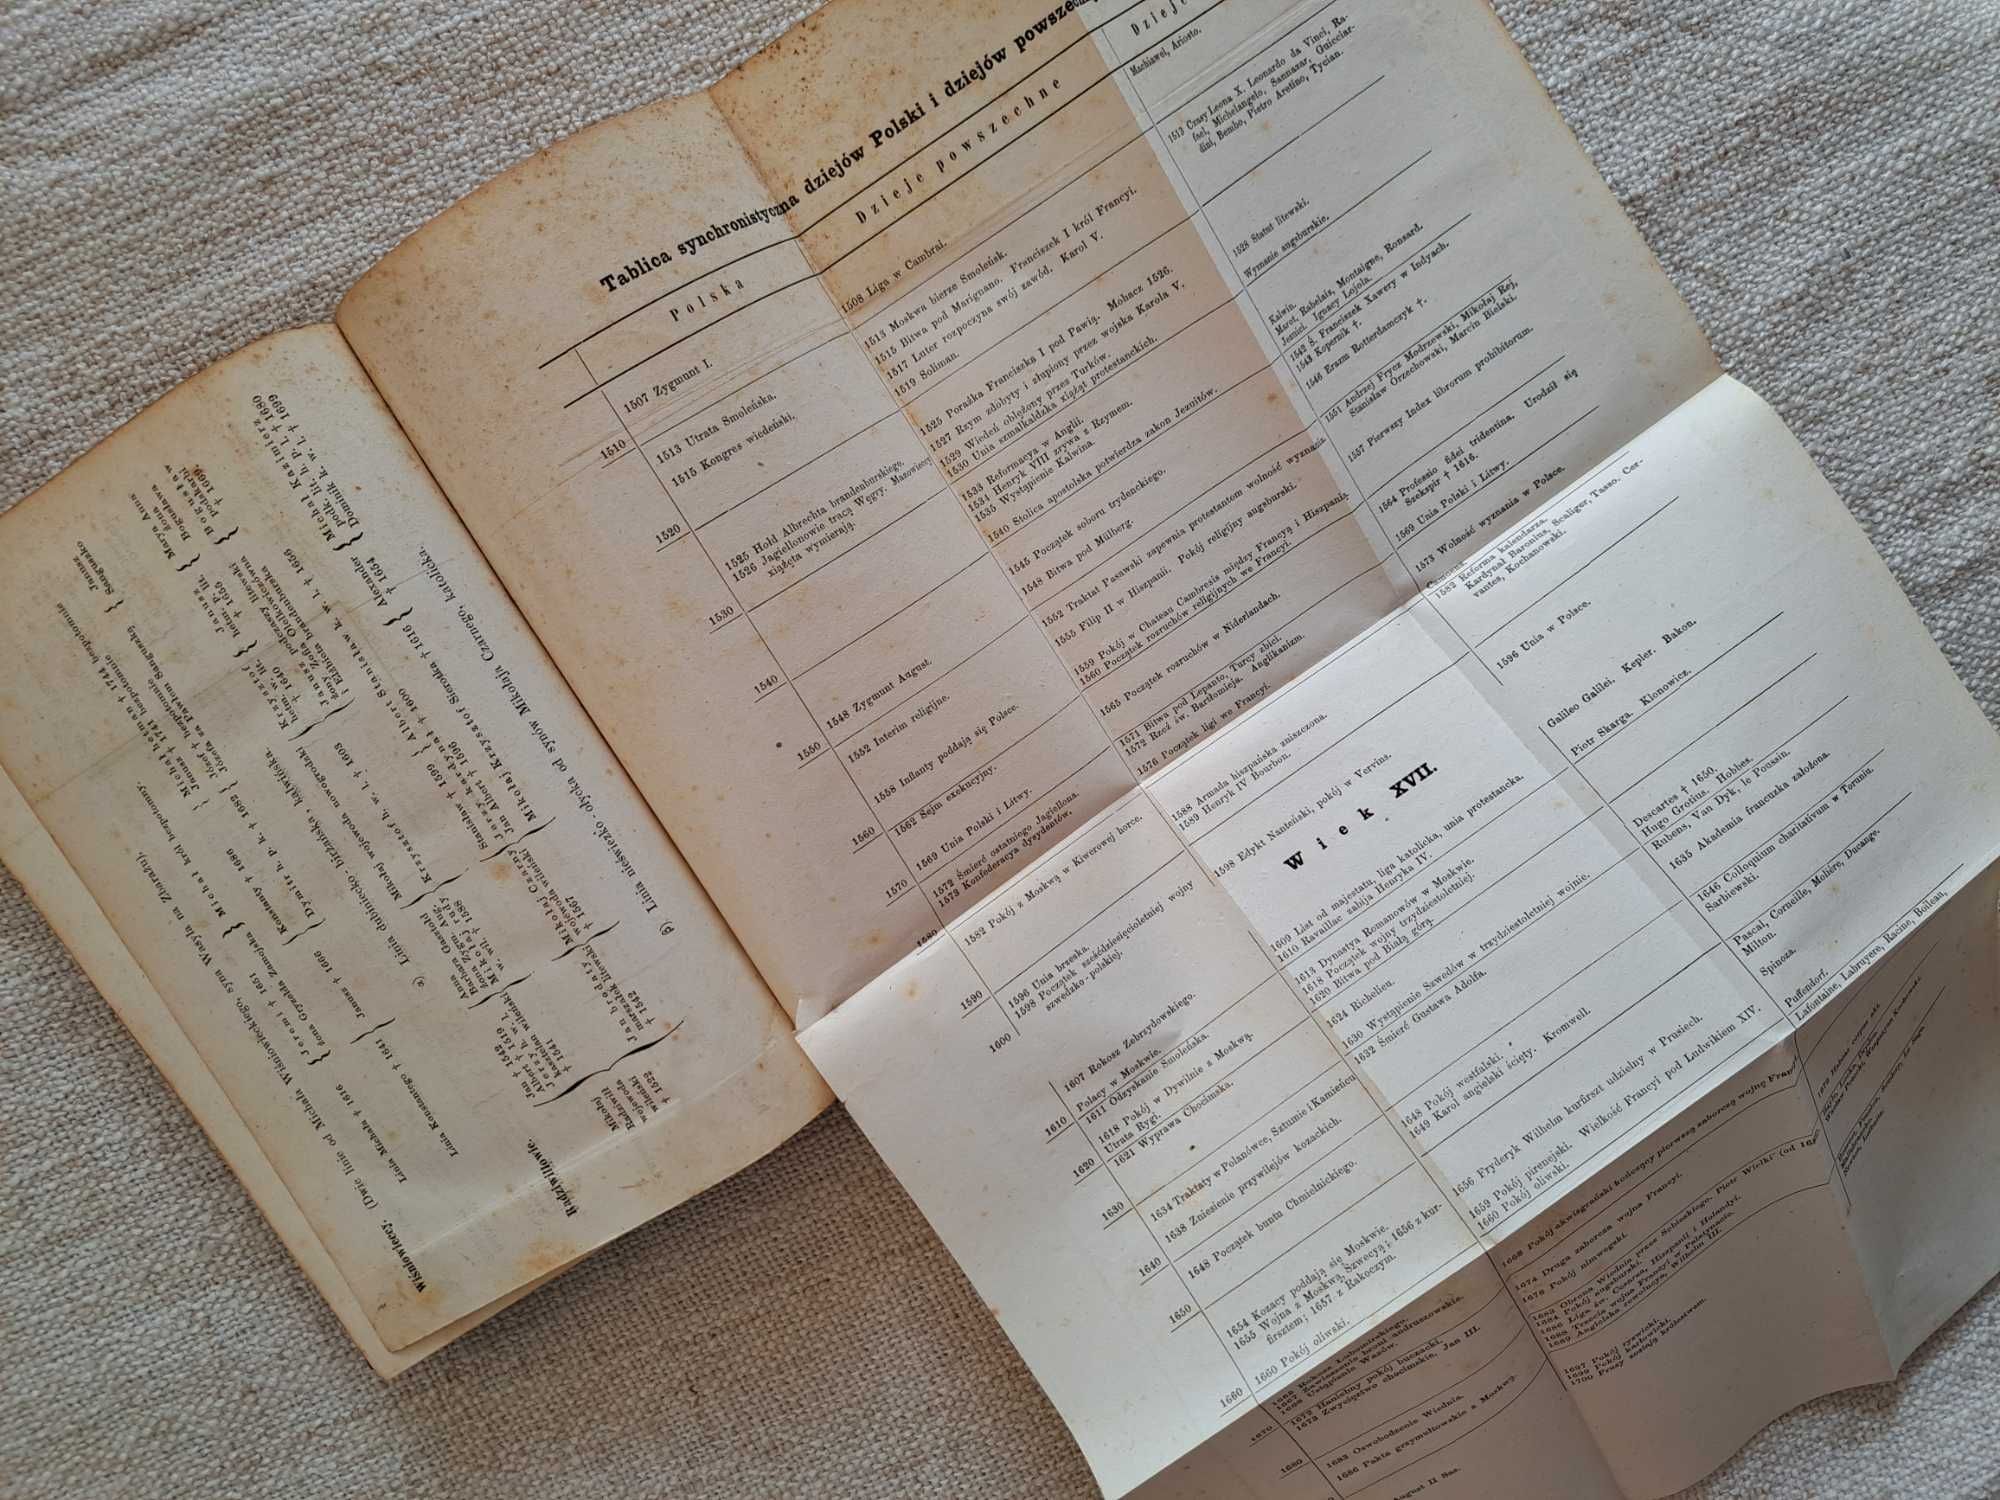 Tablica synchronistyczna dziejów Polski i dziejów
Polska
Dzieje powszechne
1507 Zygmunt I.
1510
1513 Utrata Smoleńska.
1515 Kongres wiedeński.
1520
1525 Hołd Albrechta brandenburskiego.
1526 Jagiellonowie tracą Węgry. Mazowieccy
xiążęta wymierają.
1530
1540
1548 Zygmunt August.
1550
1552 Interim religijne.
1558 Inflanty poddają się Polsce.
1560
1562 Sejm exekucyjny.
1569 Unia Polski i Litwy.
1570
1572 Śmierć ostatniego Jagiellona.
1573 Konfederacya dysydentów.
1580
1582 Pokój z Moskwą w Kiwerowej horce.
1590
1596 Unia brzeska.
1598 Początek sześćdziesięcioletniej wojny
szwedzko-polskiej.
1600
1607 Rokosz Zebrzydowskiego.
1610
Polacy w Moskwie.
1611 Odzyskanie Smoleńska.
1618 Pokój w Dywilnie z Moskwą.
Utrata Rygi.
1620
1621 Wyprawa Chocimska.
1630
1634 Traktaty w Polanówce, Sztumie i Kamieńcu
1638 Zniesienie przywilejów kozackich.
1640
1648 Początek buntu Chmielnickiego.
1650
1654 Kozacy poddają się Moskwie.
1655 Wojna z Moskwą, Szwecyą; 1656 z kur-
firsztem; 1657 z Rakoczym.
1660
1660 Pokój oliwski.
1672 Haniebny pokój buczacki.
1673 Zwycięztwo chocimskie, Jan III.
1680
1683 Oswobodzenie Wiednia.
1686 Pakta grzymułtowskie z Moskwą.
August II Sas.
1508 Liga w Cambrai.
1513 Moskwa bierze Smoleńsk.
1515 Bitwa pod Marignano. Franciszek I król Francyi.
1517 Luter rozpoczyna swój zawód. Karol V.
1519 Soliman.
1525 Porażka Franciszka I pod Pawią. Mohacz 1526.
1527 Rzym zdobyty i złupiony przez wojska Karola V.
1529 Wiedeń oblężony przez Turków.
1530 Unia szmalkaldzka xiążąt protestanckich.
1533 Reformacya w Anglii.
1534 Henryk VIII zrywa z Rzymem.
1535 Wystąpienie Kalwina.
1540 Stolica apostolska potwierdza zakon Jezuitów.
1545 Początek soboru trydenckiego.
1548 Bitwa pod Mülberg.
1552 Traktat Pasawski zapewnia protestantom wolność wyznania
1555 Filip II w Hiszpanii. Pokój religijny augsburski.
1559 Pokój w Chateau Cambresis między Francyą i Hiszpanią
1560 Początek rozruchów religijnych we Francyi.
1565 Początek rozruchów w Niderlandach.
1571 Bitwa pod Lepanto, Turcy zbici.
1572 Rzeź św. Bartłomieja. Anglikanizm.
1576 Początek ligi we Francyi.
1588 Armada hiszpańska zniszczona.
1589 Henryk IV Bourbon.
1598 Edykt Nanteński, pokój w Vervins.
Wiek XVII.
1609 List od majestatu, liga katolicka, unia protestancka.
1610 Ravaillac zabija Henryka IV.
1613 Dynastya Romanowów w Moskwie.
1618 Początek wojny trzydziestoletniej.
1620 Bitwa pod Białą górą.
1624 Richelieu.
1630 Wystąpienie Szwedów w trzydziestoletniej wojnie.
1632 Śmierć Gustawa Adolfa.
1648 Pokój westfalski.
1649 Karol angielski ścięty. Kromwell.
1656 Fryderyk Wilhelm kurfürszt udzielny w Prusiech.
1659 Pokój pirenejski. Wielkość Francyi pod Ludwikiem XIV.
1660 Pokój oliwski.
1668 Pokój akwisgrański kończący pierwszą zaborczą wojnę
1674 Druga zaborcza wojna Francyi.
1678 Pokój nimwegski.
1683 Obrona Wiednia przez Sobieskiego. Piotr Wielki (od
1684 Pokój augsburski.
1686 Liga św. Cesarza, Hiszpanii i Holandyi.
1688 Trzecia wojna Francyi w Palatynacie.
1689 Angielska rewolucya, Wilhelm III.
1697 Pokój ryswicki.
1699 Pokój karłowicki.
1700 Prusy zostają królestwem.
Machiawel, Ariosto.
1513 Czasy Leona X. Leonardo da Vinci, Ra-
fael, Michelangelo, Sannazar, Guicciar-
dini, Bembo, Pietro Aretino, Tycian.
1528 Statut litewski.
Wyznanie augsburskie.
Kalwin.
Marot, Rabelais, Montaigne, Ronsard.
Jezuici. Ignacy Lojola.
1542 Ś. Franciszek Xawery w Indyach.
1543 Kopernik †.
1546 Erazm Rotterdamczyk †.
1551 Andrzej Frycz Modrzewski, Mikołaj Rej,
Stanisław Orzechowski, Marcin Bielski.
1557 Pierwszy Index librorum prohibitorum.
1564 Professio fidei tridentina. Urodził się
Szekspir † 1616.
1569 Unia Polski i Litwy.
1573 Wolność wyznania w Polsce.
1582 Reforma kalendarza.
Kardynał Baronius, Scaliger, Tasso. Cer-
vantes, Kochanowski.
1596 Unia w Polsce.
Galileo Galilei. Kepler. Bakon.
Piotr Skarga. Klonowicz.
Descartes † 1650.
Hugo Grotius. Hobbes.
Rubens, Van Dyk, le Poussin.
1635 Akademia francuzka założona.
1646 Colloquium charitativum w Toruniu.
Sarbiewski.
Pascal, Corneille, Molière, Ducange.
Milton.
Spinoza.
Puffendorf.
Lafontaine, Labruyere, Racine, Boileau,
Wiśniowieccy. (Dwie linie od Michała Wiśniowieckiego, syna Wasyla na Zbarażu).
Linia Michała † 1616
Jeremi † 1651
żona Gryzelda Zamojska
Michał król bezpotomny.
Linia Konstantego † 1641
Janusz † 1666
Konstanty † 1686
Dymitr h. p. k. † 1682
Michał hetman † 1744 bezpotomnie
Janusz † 1741 bezpotomnie
Józef † bezpotomnie
Józefa za Pawłem Sanguszką
Janusz
Sanguszko
Radziwiłłowie.
Mikołaj
Radziwiłł
wojewoda
wileński
† 1522
Jan † 1542
Albert † 1519
Jerzy h. w. l.
kasztelan wileński
† 1541
Jan brodaty
marszałek litewski
† 1542
Anna
Barbara Gasztołd
żona Zygm. Aug.
Mikołaj rudy
w. wil. † 1588
Mikołaj Czarny
wojewoda wileński
† 1567
α) Linia dubiniecko-birżańska, kalwińska.
Mikołaj wojewoda nowogrodzki
Krzysztof h. w. l. † 1603
Krzysztof
hetm. w. lit.
† 1640
Janusz podczaszy litewski
żony Zofia Olelkowiczówna
i Elżbieta brandenburska
Janusz
hetm. P. lit.
† 1655
Bogusław
† 1669
Marya Anna
żona
Bogusława
β) Linia nieświezko-ołycka od synów Mikołaja Czarnego, katolicka.
Mikołaj Krzysztof Sierotka † 1616
Jan
Albert † 1596
Jerzy kardynał † 1600
Stanisław † 1599
Albert Stanisław k. w. l. † 1656
Alexander
† 1654
Michał Kazimierz
podk. lit. h. P. l. † 1680
Dominik k. w. l. † 1699